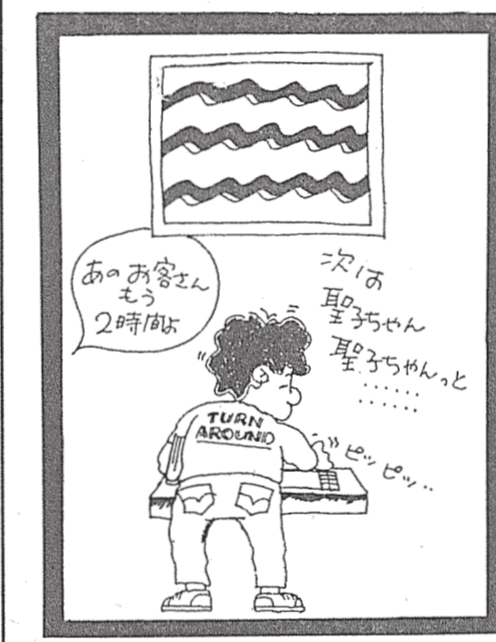 あのお客さん
もう
2時間よ
次は
聖子ちゃん
聖子ちゃんっと
‥‥‥
‥‥‥
TURN
AROUND
ピッピッ‥